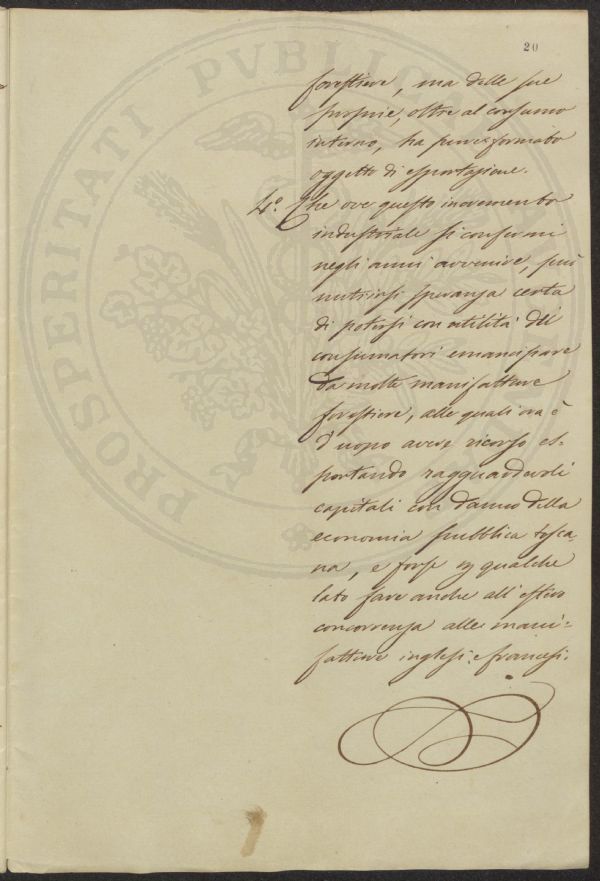 20
forestiere, ma delle sue
proprie, oltre al consumo
interno, ha pure formato
oggetto di esportazione.
4.° Che ove questo incremento
industriale si confermi
negli anni avvenire, può
nutrirsi speranza certa
di potersi con utilità dei
consumatori emancipare
da molte manifatture
forestiere, alle quali ora è
d'uopo avere ricorso es-
portando ragguardevoli
capitali con danno della
economia pubblica tosca-
na, e forse in qualche
lato fare anche all'estero
concorrenza alle mani=
fatture inglesi e francesi.
PROSPERITATI PVBLICAE